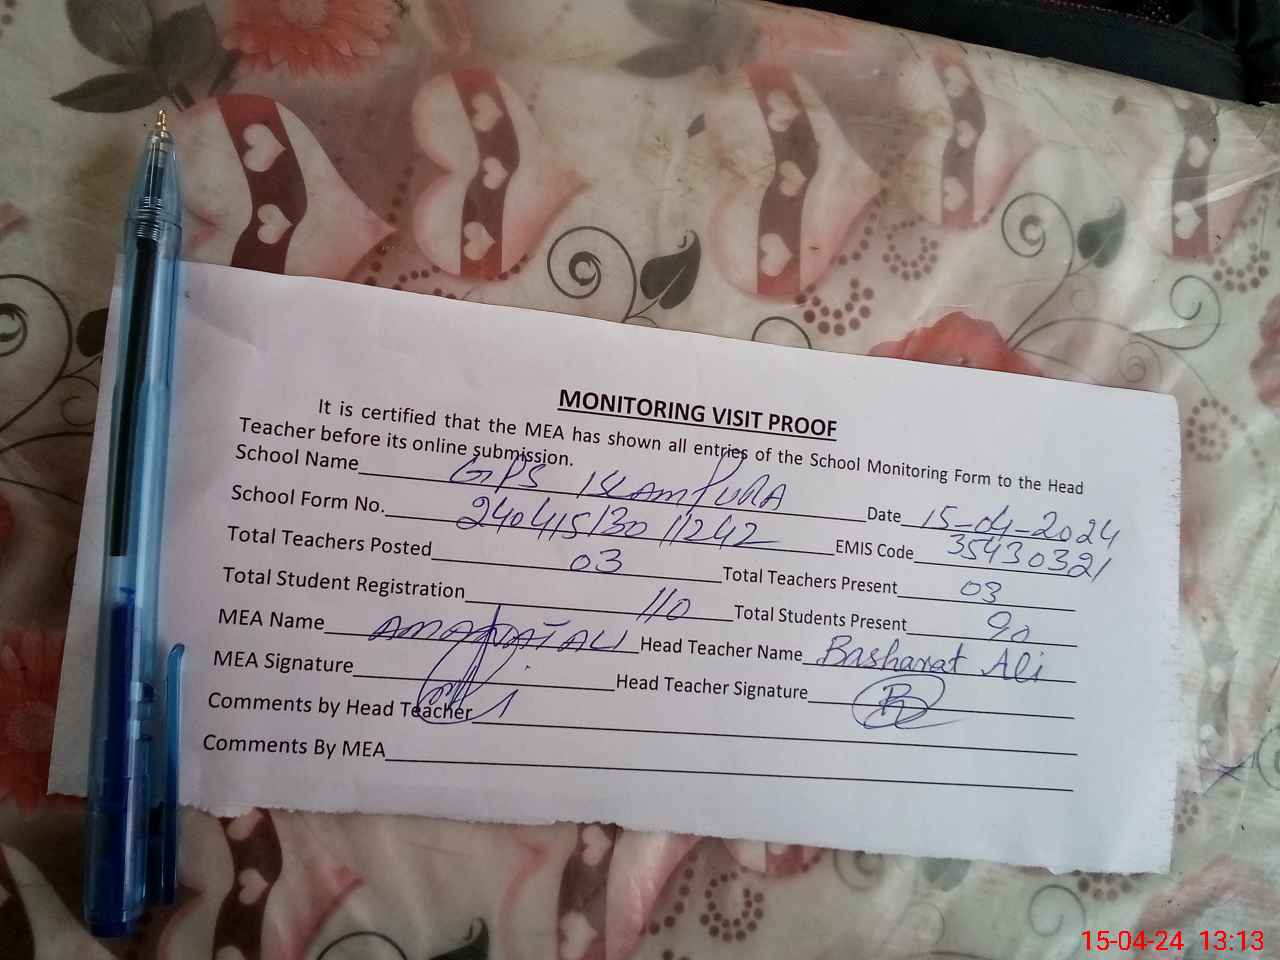 MONITORING VISIT PROOF
It is certified that the MEA has shown all entries of the School Monitoring Form to the Head
Teacher before its online submission.
School Name GPS ISLAMPURA Date 15-04-2024
School Form No. 240415130 11242 EMIS Code 35430321
Total Teachers Posted 03 Total Teachers Present 03
Total Student Registration 110 Total Students Present 90
MEA Name ALI Head Teacher Name Basharat Ali
MEA Signature Head Teacher Signature
Comments by Head Teacher
Comments By MEA
15-04-24 13:13